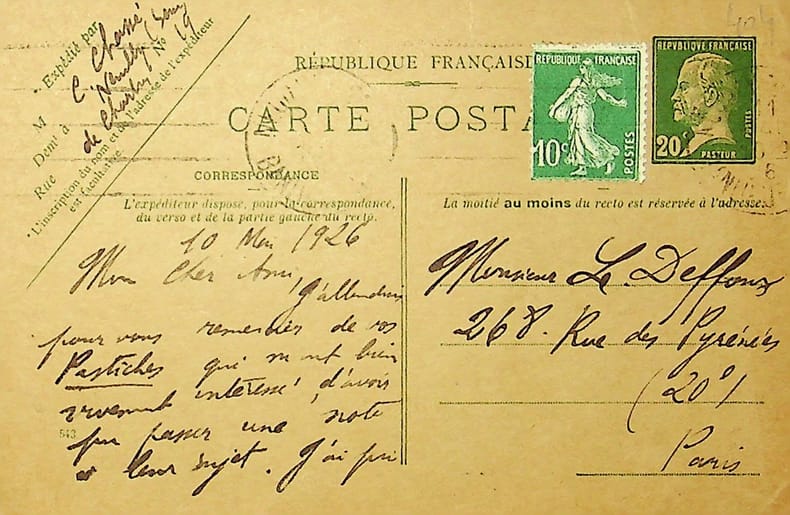 404
Expédié par
M C. Chassé
Demt à Neuilly (Seine
Rue de Chartres No 19
L'inscription du nom et de l'adresse de l'expéditeur
est facultative.
RÉPUBLIQUE FRANÇAISE
CARTE POSTA
RÉPUBLIQUE FRANÇAISE
10c
POSTES
RÉPUBLIQUE FRANÇAISE
20c
POSTES
PASTEUR
CORRESPONDANCE
L'expéditeur dispose, pour la correspondance,
du verso et de la partie gauche du recto.
La moitié au moins du recto est réservée à l'adresse.
10 Mai 1926
Mon Cher Ami,
J'attendais
pour vous remercier de vos
Pastiches qui m'ont bien
vivement intéressé d'avoir
pu passer une note
à leur sujet. J'ai pu
843
Monsieur Le Deffoux
268. Rue des Pyrénées
(20e)
Paris